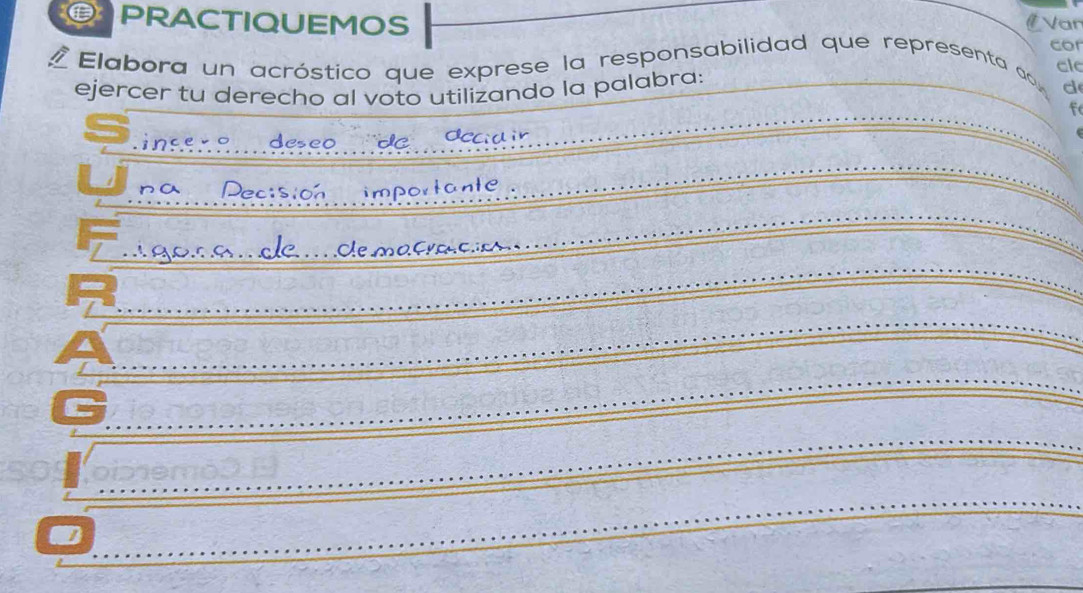 PRACTIQUEMOS
Elabora un acróstico que exprese la responsabilidad que representa
ejercer tu derecho al voto utilizando la palabra:
Sincero deseo de decidir
Una Decisión importante.
Figora de democracia
R
A
G
I
O